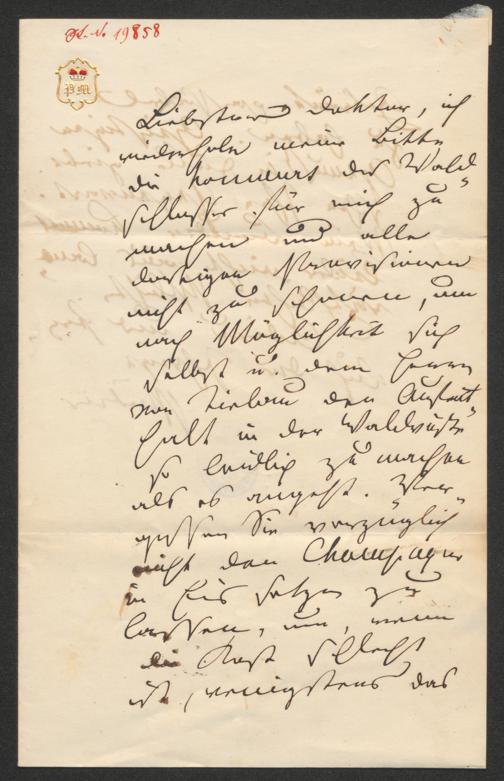 H. N. 19858
PM
Liebster Doktor, ich
wiederhole meine Bitte
die honneurs des Wald„
schlosses für mich zu
machen und alle
dortigen Provisionen
nicht zu schonen, um
nach Möglichkeit sich
selbst u. dem Herrn
von den Aufent„
halt in der Waldwüste
so leidlich zu machen
als es angeht. Ver„
gessen Sie vorzüglich
nicht den Champagner
in Eis setzen zu
lassen, um, wenn
die Kost schlecht
ist, wenigstens das